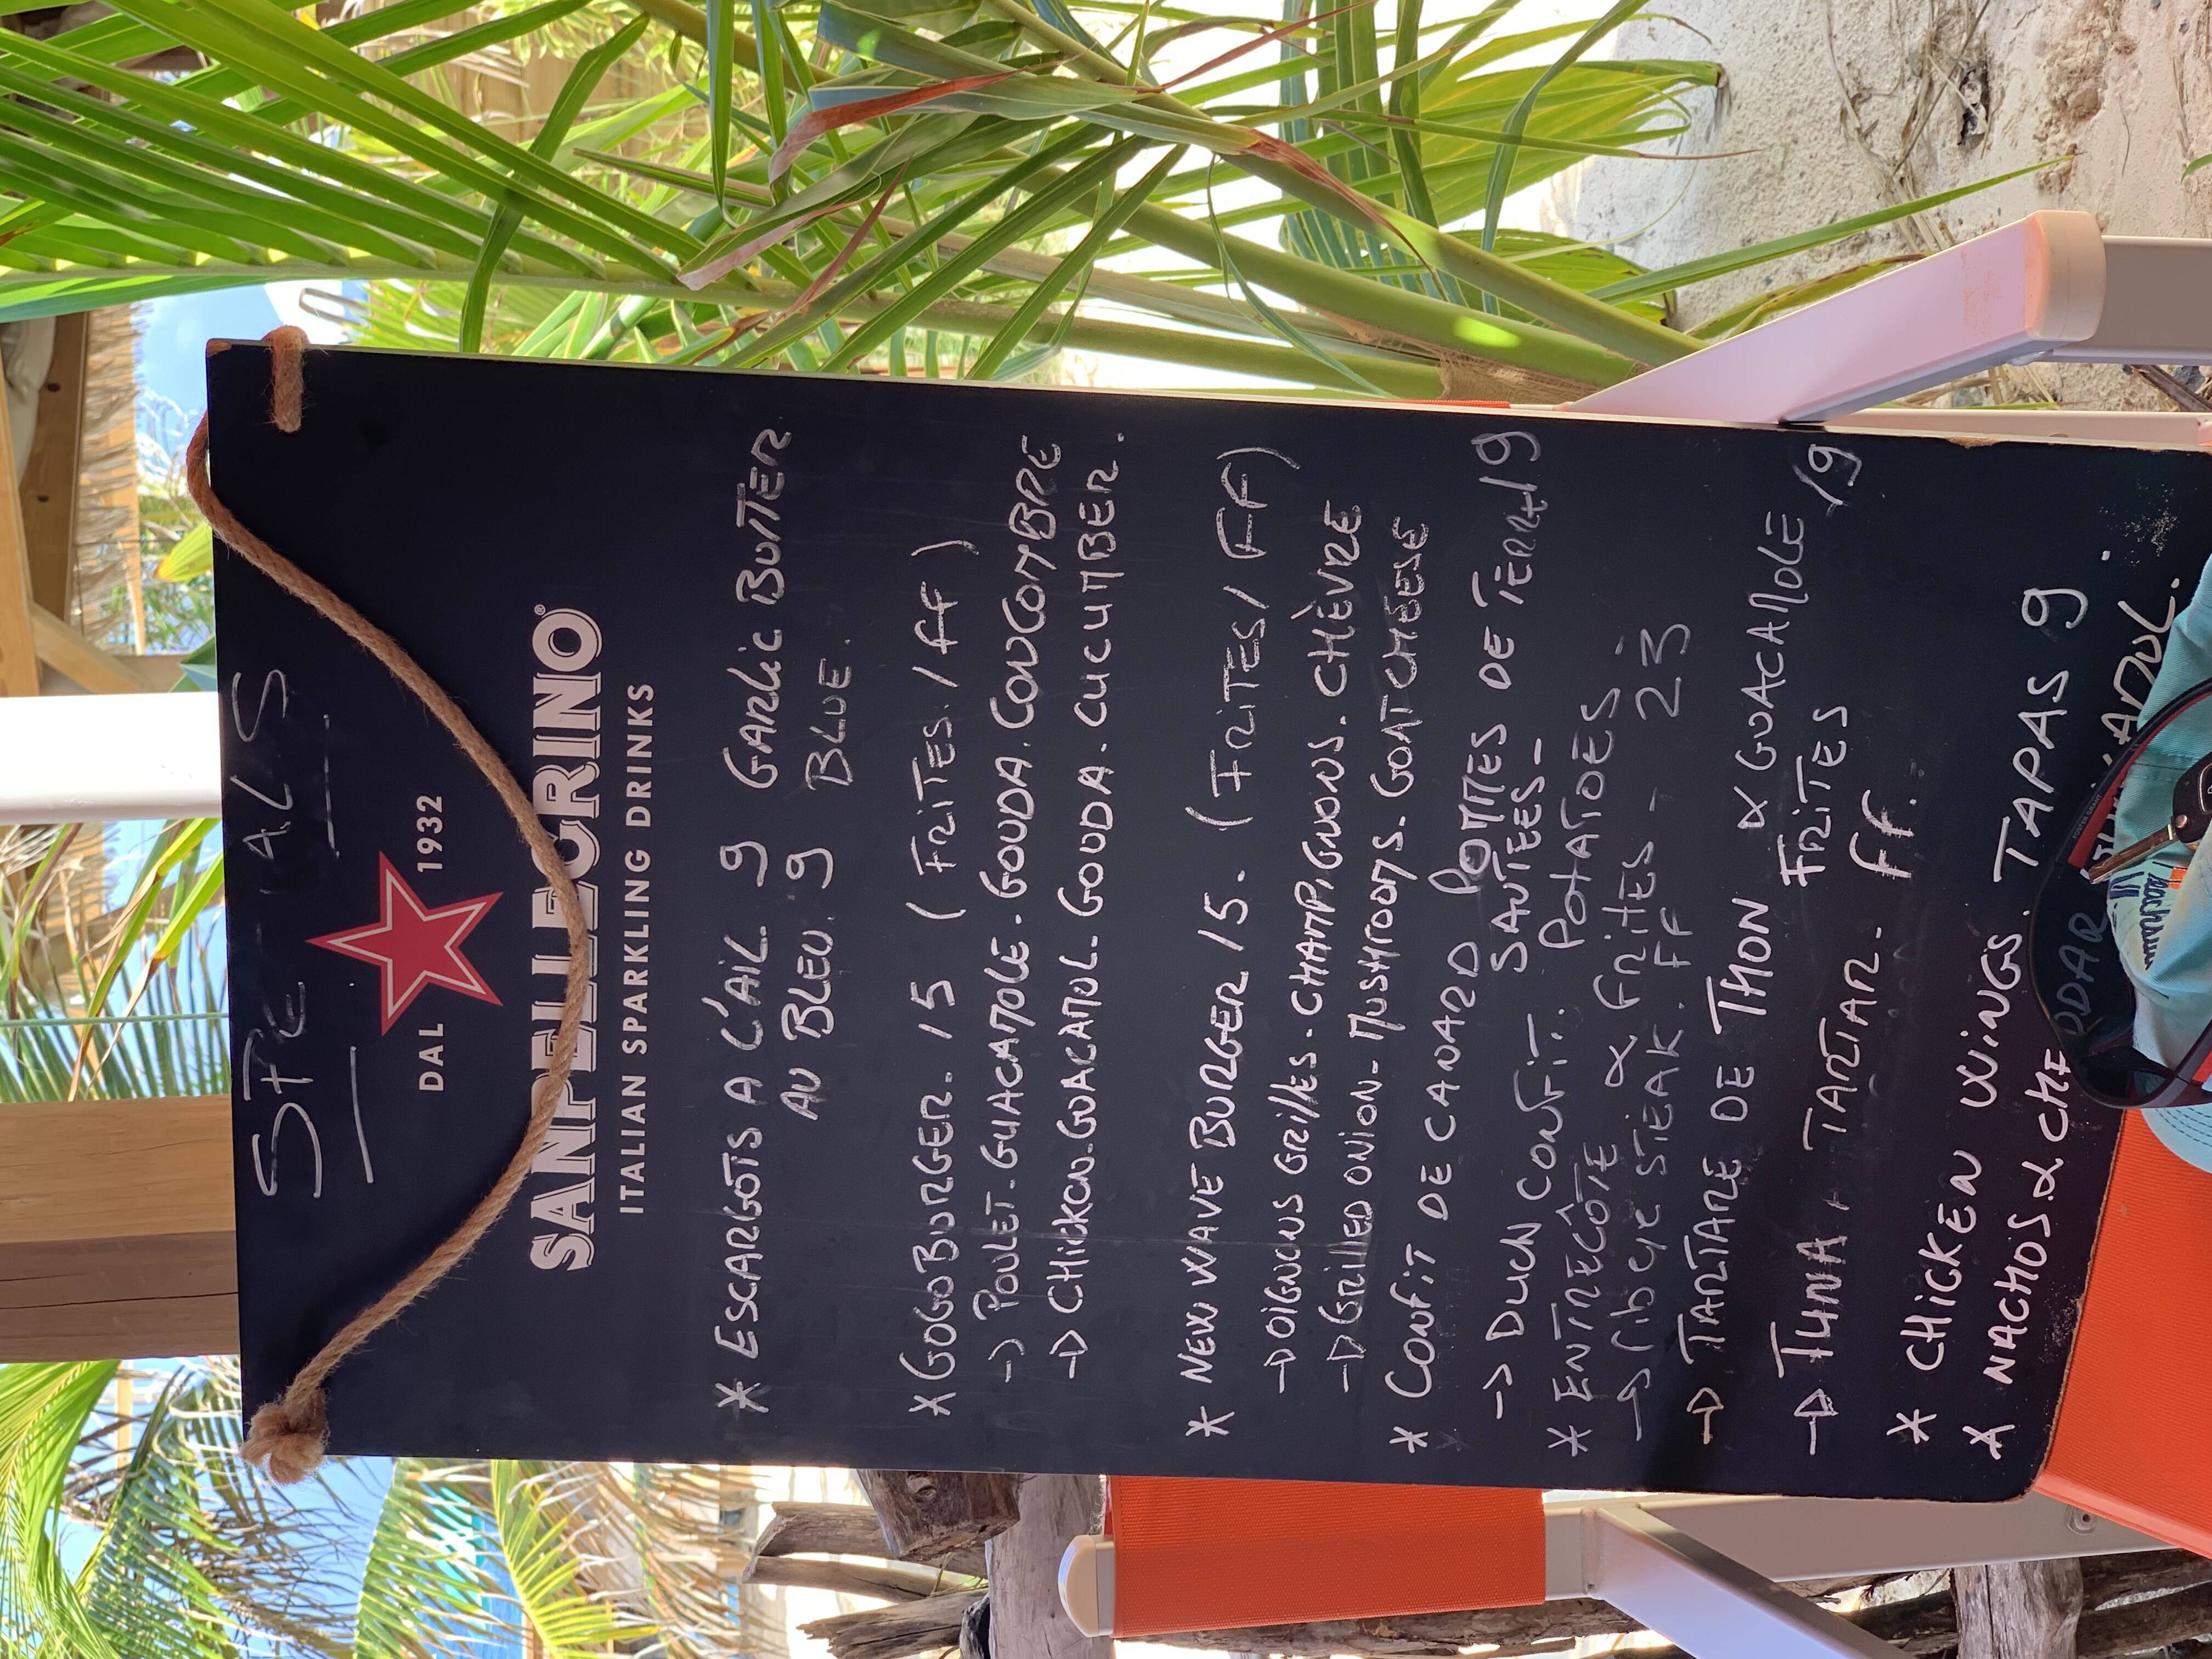 SPE IALS
DAL 1932
SANPELLEGRINO®
ITALIAN SPARKLING DRINKS
* ESCARGOTS A L'AIL. 9 GARLIC BUTTER
AU BLEU. 9 BLUE.
* GOGO BURGER. 15 (FRITES. / FF)
-> POULET. GUACAMOLE. GOUDA. CONCOMBRE
-> CHICKEN. GUACAMOL. GOUDA. CUCUMBER.
* NEW WAVE BURGER 15. (FRITES / FF)
-> OIGNONS GRILLES. CHAMPIGNONS. CHÈVRE
-> GRILLED ONION. MUSHROOMS. GOATCHEESE
* CONFIT DE CANARD POMMES DE TERRE 19
SAUTEES -
-> DUCK CONFIT. POTATOES
* ENTRECÔTE & FRITES - 23
-> ribeye STEAK. FF
-> TARTARE DE THON & GUACAMOLE
FRITES 19
-> TUNA TARTAR. FF.
* CHICKEN WINGS. TAPAS 9.
* NACHOS & CHE DDAR